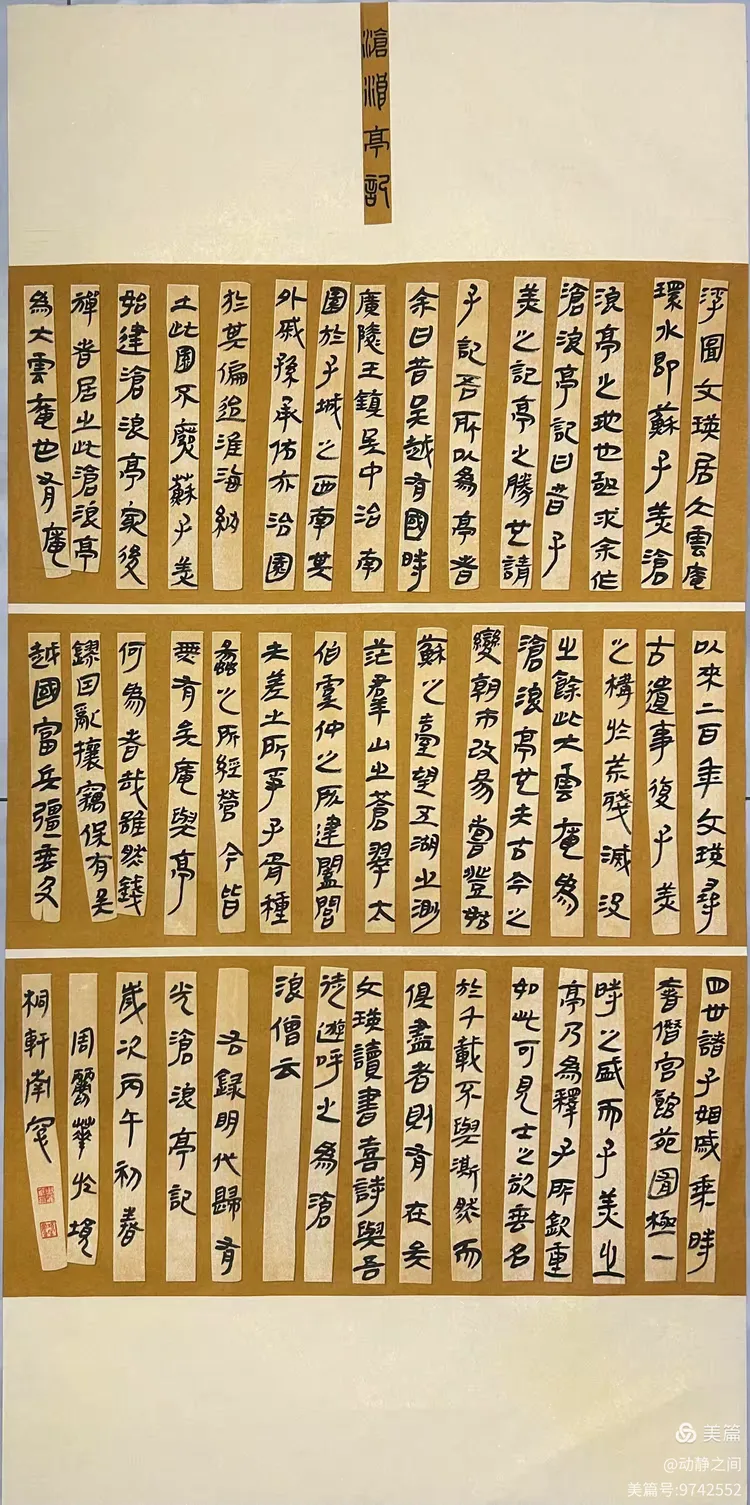 滄浪亭記
浮圖文瑛居大雲庵
環水即蘇子美滄
浪亭之地也亟求余作
滄浪亭記曰昔子
美之記亭之勝也請
子記吾所以為亭者
余曰昔吳越有國時
廣陵王鎮吳中治南
園於子城之西南其
外戚孫承佑亦治園
於其偏迨淮海納
土此園不廢蘇子美
始建滄浪亭最後
禪者居之此滄浪亭
為大雲庵也有庵
以來二百年文瑛尋
古遺事復子美
之構於荒殘滅沒
之餘此大雲庵為
滄浪亭也夫古今之
變朝市改易嘗登姑
蘇之臺望五湖之渺
茫羣山之蒼翠太
伯虞仲之所建闔閭
夫差之所爭子胥種
蠡之所經營今皆
無有矣庵與亭
何為者哉雖然錢
鏐因亂攘竊保有吳
越國富兵彊垂及
四世諸子姻戚乘時
奢僭宮館苑囿極一
時之盛而子美之
亭乃為釋子所欽重
如此可見士之欲垂名
於千載不與澌然而
俱盡者則有在矣
文瑛讀書喜詩與吾
徒遊呼之為滄
浪僧云
右録明代歸有
光滄浪亭記
歲次丙午初春
周麗華於境
桐軒南窗
美篇
@动静之间
美篇号:9742552